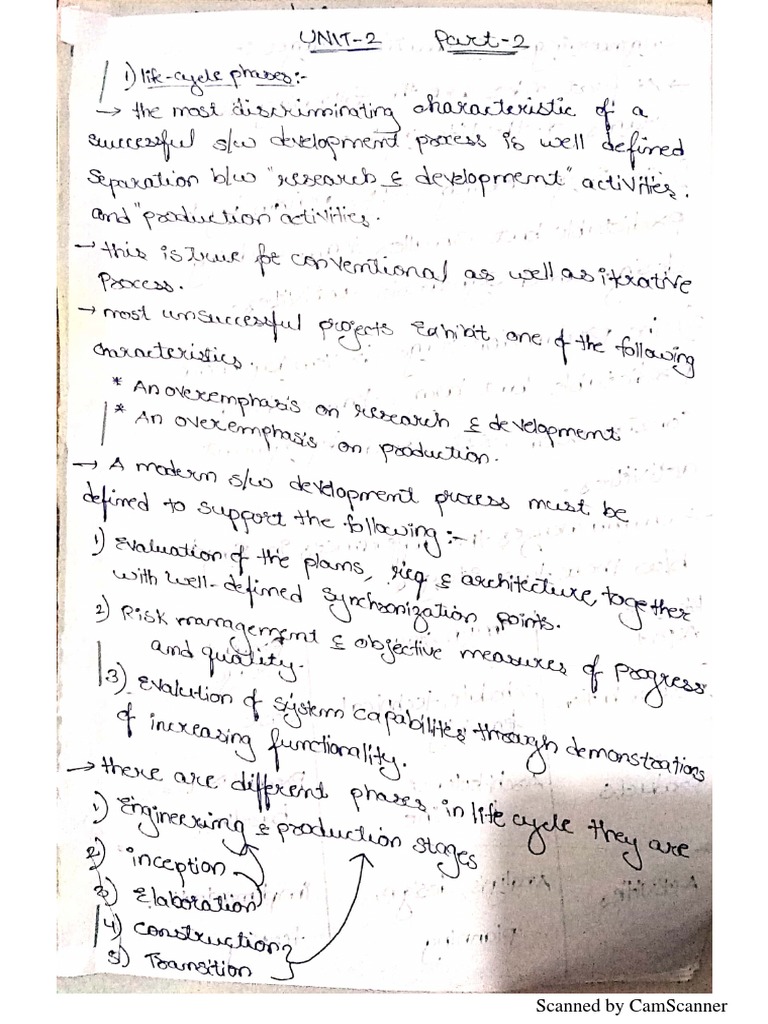 UNIT-2 Part-2
1) life-cycle phases:-
→ the most discriminating characteristic of a
successful s/w development process is well defined
separation b/w "research & development" activities.
and "production" activities.
→ this is true for conventional as well as itrative
Process.
→ most unsuccessful projects exhibit one of the following
characteristics.
* An overemphasis on research & development
* An overemphasis on production.
→ A modern s/w development process must be
defined to support the following:-
1) Evaluation of the plans, req & architecture, together
with well-defined synchronization points.
2) Risk management & objective measures of progress
and quality.
3) Evalution of system capabilities through demonstrations
of increasing functionality.
→ there are different phases in life cycle they are
1) Engineering & production stages
2) inception
3) Elaboration
4) construction
5) Transition
Scanned by CamScanner